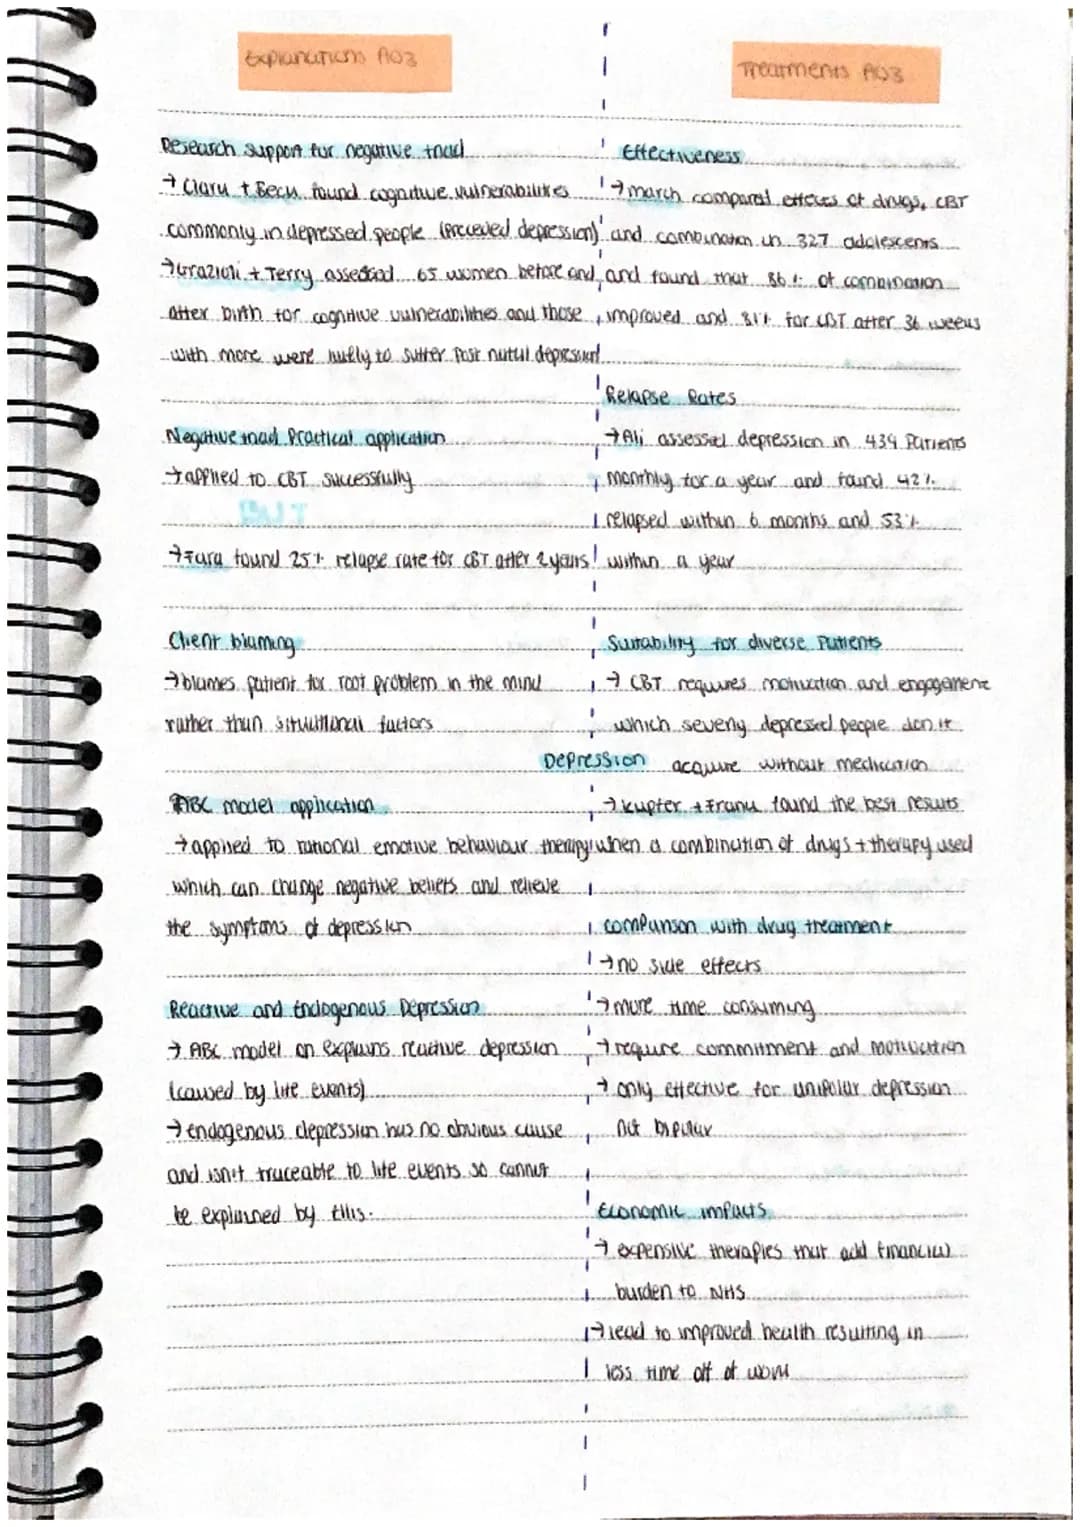 Explanations AO3
Research support for negative triad
→ Clark + Beck found cognitive vulnerabilities
commonly in depressed people (preceded depression)
→ Grazioli + Terry assessed 65 women before and
after birth for cognitive vulnerabilities and those
with more were likely to suffer post natal depression
Negative triad Practical application
→ applied to CBT successfully
→ Fara found 25% relapse rate for CBT after 2 years
Client blaming
→ blames patient for root problem in the mind
rather than situational factors
ABC model application
→ applied to rational emotive behaviour therapy
which can change negative beliefs and relieve
the symptoms of depression
Reactive and Endogenous Depression
→ ABC model on explains reactive depression
(caused by life events)
→ endogenous depression has no obvious cause
and isn't traceable to life events so cannot
be explained by Ellis.
Depression
Treatments AO3
Effectiveness
→ march compared effects of drugs, CBT
and combination in 327 adolescents
and found that 86% of combination
improved and 81% for CBT after 36 weeks
Relapse Rates
→ Ali assessed depression in 439 Patients
monthly for a year and found 42%
relapsed within 6 months and 53%
within a year
Suitability for diverse Patients
→ CBT requires motivation and engagement
which severly depressed people don't
acquire without medication
→ Kupfer + Frank found the best results
when a combination of drugs + therapy used
comparison with drug treatment
→ no side effects
→ more time consuming
→ require commitment and motivation
→ only effective for unipolar depression
not bipolar
Economic impacts
→ expensive therapies that add financial
burden to NHS
→ lead to improved health resulting in
less time off of work